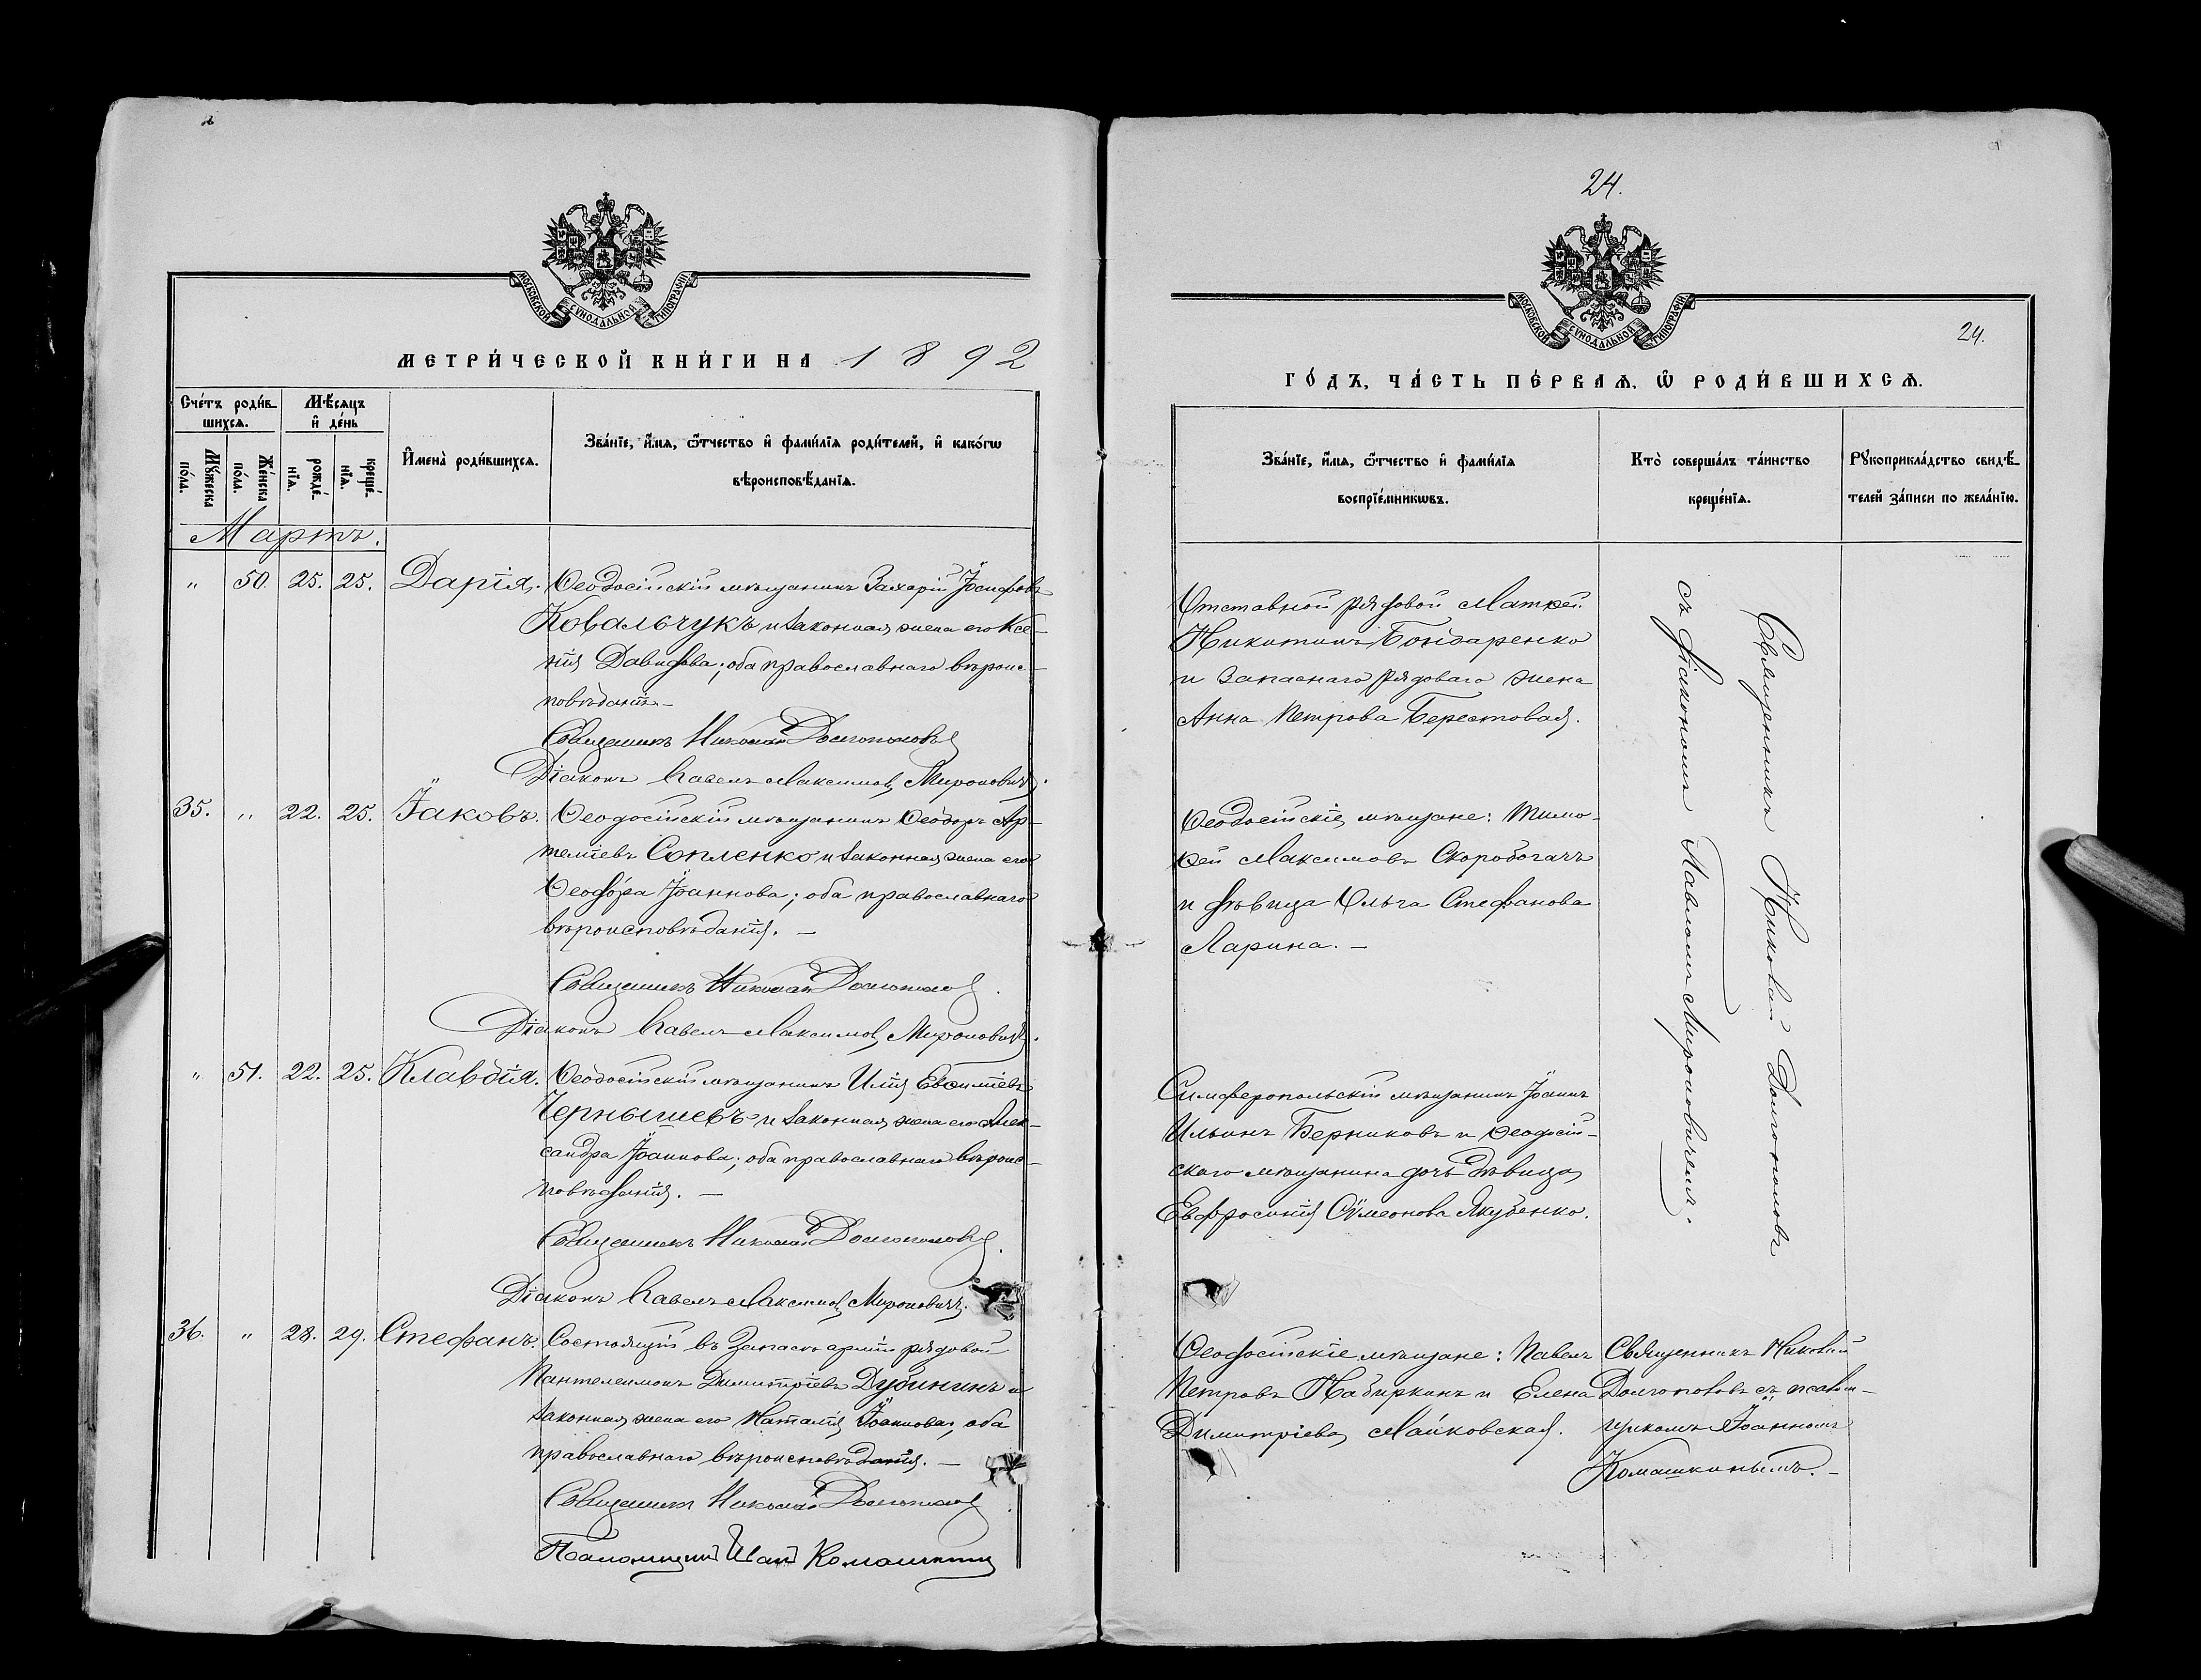 МОСКОВСКОЙ СѴНОДАЛЬНОЙ ТИПОГРАФІИ
МЕТРИ́ЧЕСКОЙ КНИ́ГИ НА 1892
Сче́тъ роди́в-
шихсѧ.
Мꙋ́жеска по́ла.
Же́нска по́ла.
Мѣ́сѧцъ
и҆ де́нь
рожде́-
нїѧ.
креще́-
нїѧ.
И҆мена̀ роди́вшихсѧ.
Зва́нїе, и҆́мѧ, ѻ҆́тчество и҆ фами́лїѧ роди́телей, и҆ како́гѡ
вѣроисповѣ́данїѧ.
Мартъ.
" 50. 25. 25. Дарія. Ѳеодосійскій мѣщанинъ Захарій Іосифовъ
Ковальчукъ и законная жена его Ксе-
нія Давидова; оба православнаго вѣроис-
повѣданія.–
Священникъ Николай Долгополовъ
Діаконъ Павелъ Максимовъ Мироновичъ.
35. " 22. 25. Іаковъ. Ѳеодосійскій мѣщанинъ Ѳеодоръ Ар-
теміевъ Сопленко и законная жена его
Ѳеодора Іоаннова; оба православнаго
вѣроисповѣданія. –
Священникъ Николай Долгополовъ
Діаконъ Павелъ Максимовъ Мироновичъ.
" 51. 22. 25. Клавдія. Ѳеодосійскій мѣщанинъ Илія Евѳиміевъ
Чернышевъ и законная жена его Алек-
сандра Іоаннова; оба православнаго вѣроис-
повѣданія. –
Священникъ Николай Долгополовъ.
Діаконъ Павелъ Максимовъ Мироновичъ.
36. " 28. 29. Стефанъ. Состоящій въ запасѣ арміи рядовой
Пантелеимонъ Димитріевъ Дубининъ и
законная жена его Наталія Іоаннова, оба
православнаго вѣроисповѣданія. –
Священникъ Николай Долгополовъ.
Псаломщикъ Иванъ Комашкинъ
24.
МОСКОВСКОЙ СѴНОДАЛЬНОЙ ТИПОГРАФІИ
24.
ГО́ДЪ, ЧА́СТЬ ПЕ́РВАѦ, Ѡ҆ РОДИ́ВШИХСѦ.
Зва́нїе, и҆́мѧ, ѻ҆́тчество и҆ фами́лїѧ
воспрїе́мникѡвъ.
Кто̀ соверша́лъ та́инство
креще́нїѧ.
Рꙋкоприкла́дство свидѣ́-
телей за́писи по жела́нїю.
Отставной рядовой Матѳей
Никитинъ Бондаренко
и запаснаго рядоваго жена
Анна Петрова Берестовая.
Ѳеодосійскіе мѣщане: Тимо-
ѳей Максимовъ Скоробогачъ
и дѣвица Ольга Стефанова
Ларина. –
Симферопольскій мѣщанинъ Іоаннъ
Ильинъ Берниковъ и Ѳеодосій-
скаго мѣщанина дочь дѣвица
Евфросинія Сѵмеонова Якубенко.
Священникъ Николай Долгополовъ
съ діакономъ Павломъ Мироновичемъ.
Ѳеодосійскіе мѣщане: Павелъ
Петровъ Набиркинъ и Елена
Димитріева Майковская.
Священникъ Николай
Долгополовъ съ псалом-
щикомъ Іоанномъ
Комашкинымъ. –